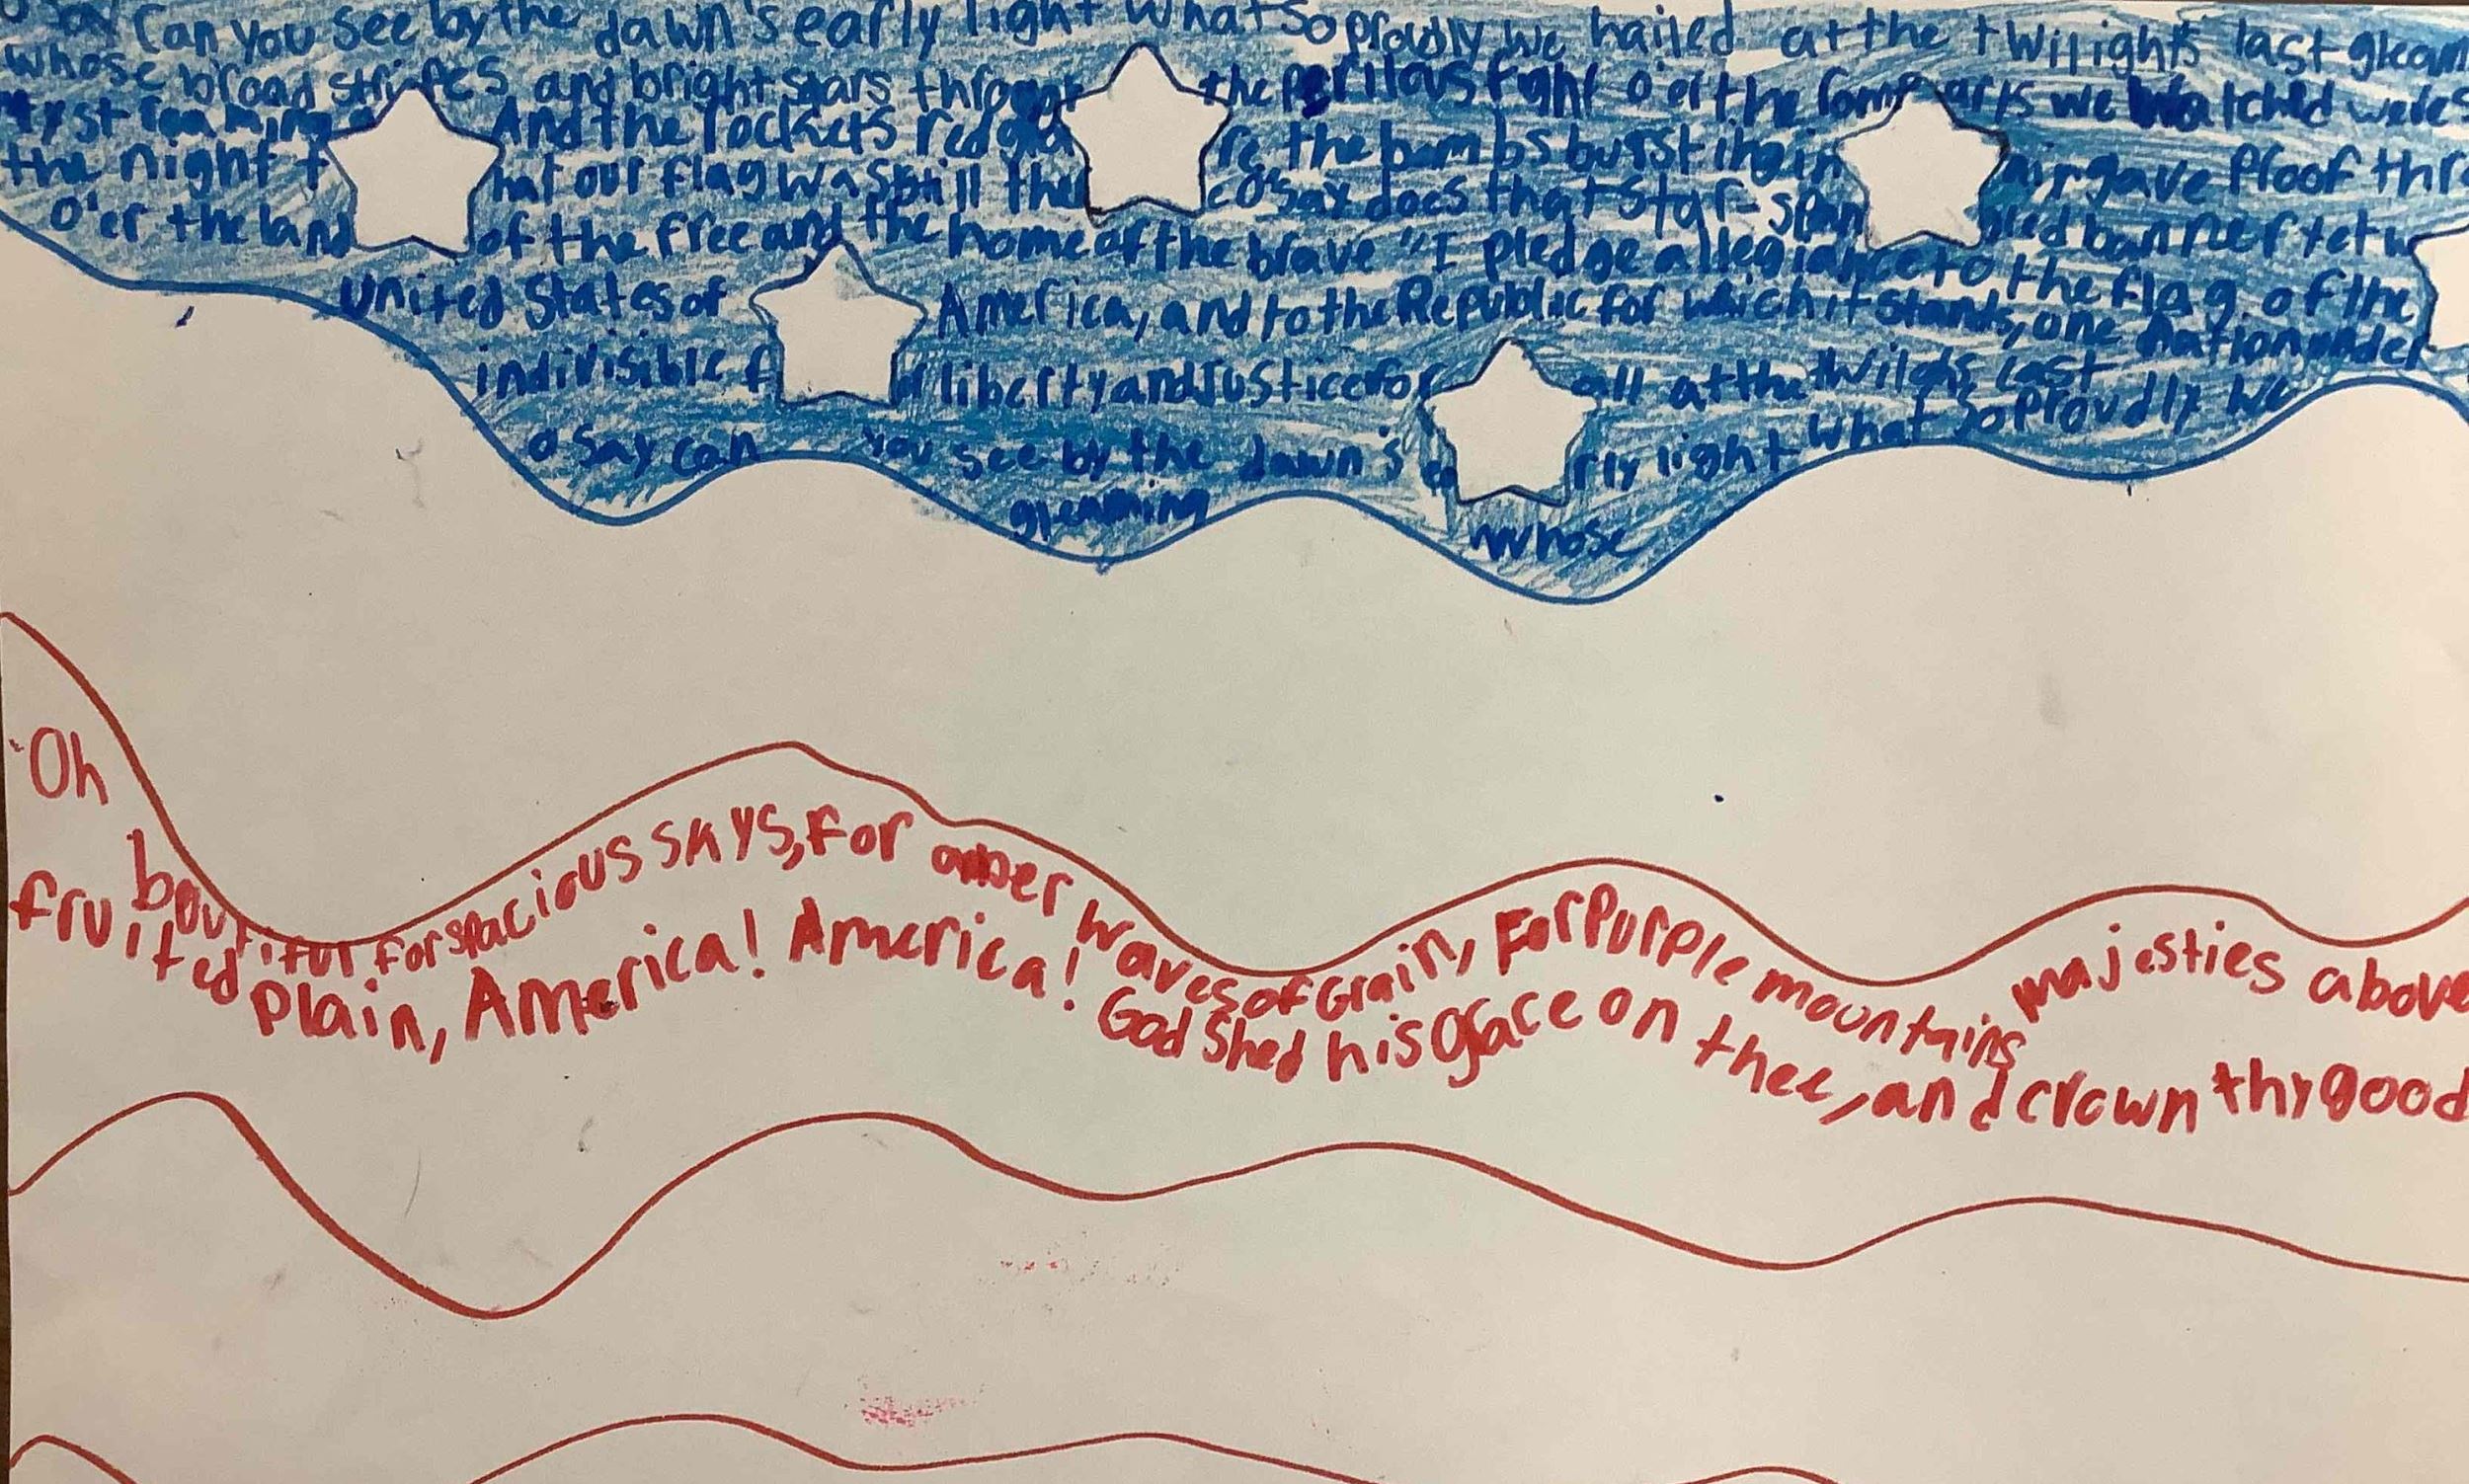 O say can you see by the dawn's early light what so proudly we hailed at the twilights last gleam
whose broad stripes and bright stars through the perilous fight o'er the we watched weres
And the rockets red gla re the bombs bursting in air gave proof thro
the night t hat our flag was still the re O say does that star-span gled banner yet w
o'er the land of the free and the home of the brave "I pledge allegiance to the flag of the
United States of America, and to the Republic for which it stands, one nation under
indivisible f or liberty and Justice for all at the twilghs last
O say can you see by the dawn's ea rly light what so proudly we
gleaming whose
Oh boutiful for spacious skys, for amber waves of Grain, For Purple mountains majesties above
fruited Plain, America! America! God shed his grace on thee, and crown thy good